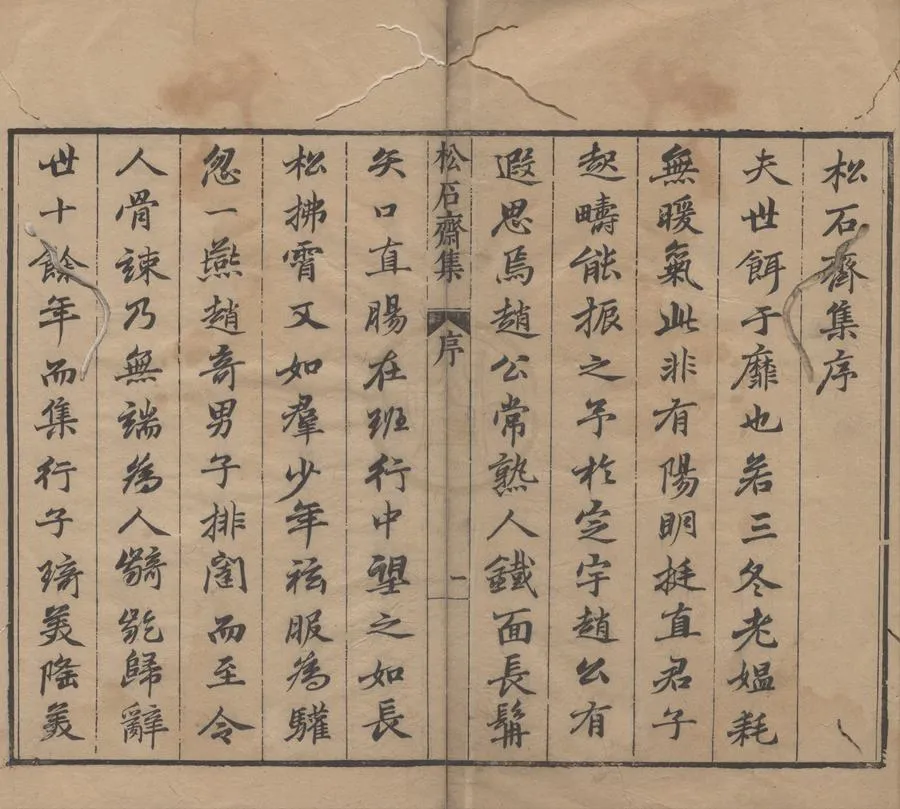 松石齋集序
夫世餌于靡也若三冬老媼耗
無暖氣此非有陽明挺直君子
起疇能振之予於定宇趙公有
遐思焉趙公常熟人鐵面長髯
松石齋集 序 一
矢口直腸在班行中望之如長
松拂霄又如羣少年袨服為驩
忽一燕趙奇男子排闥而至令
人骨竦乃無端為人齮齕歸辭
世十餘年而集行子琦美隆美